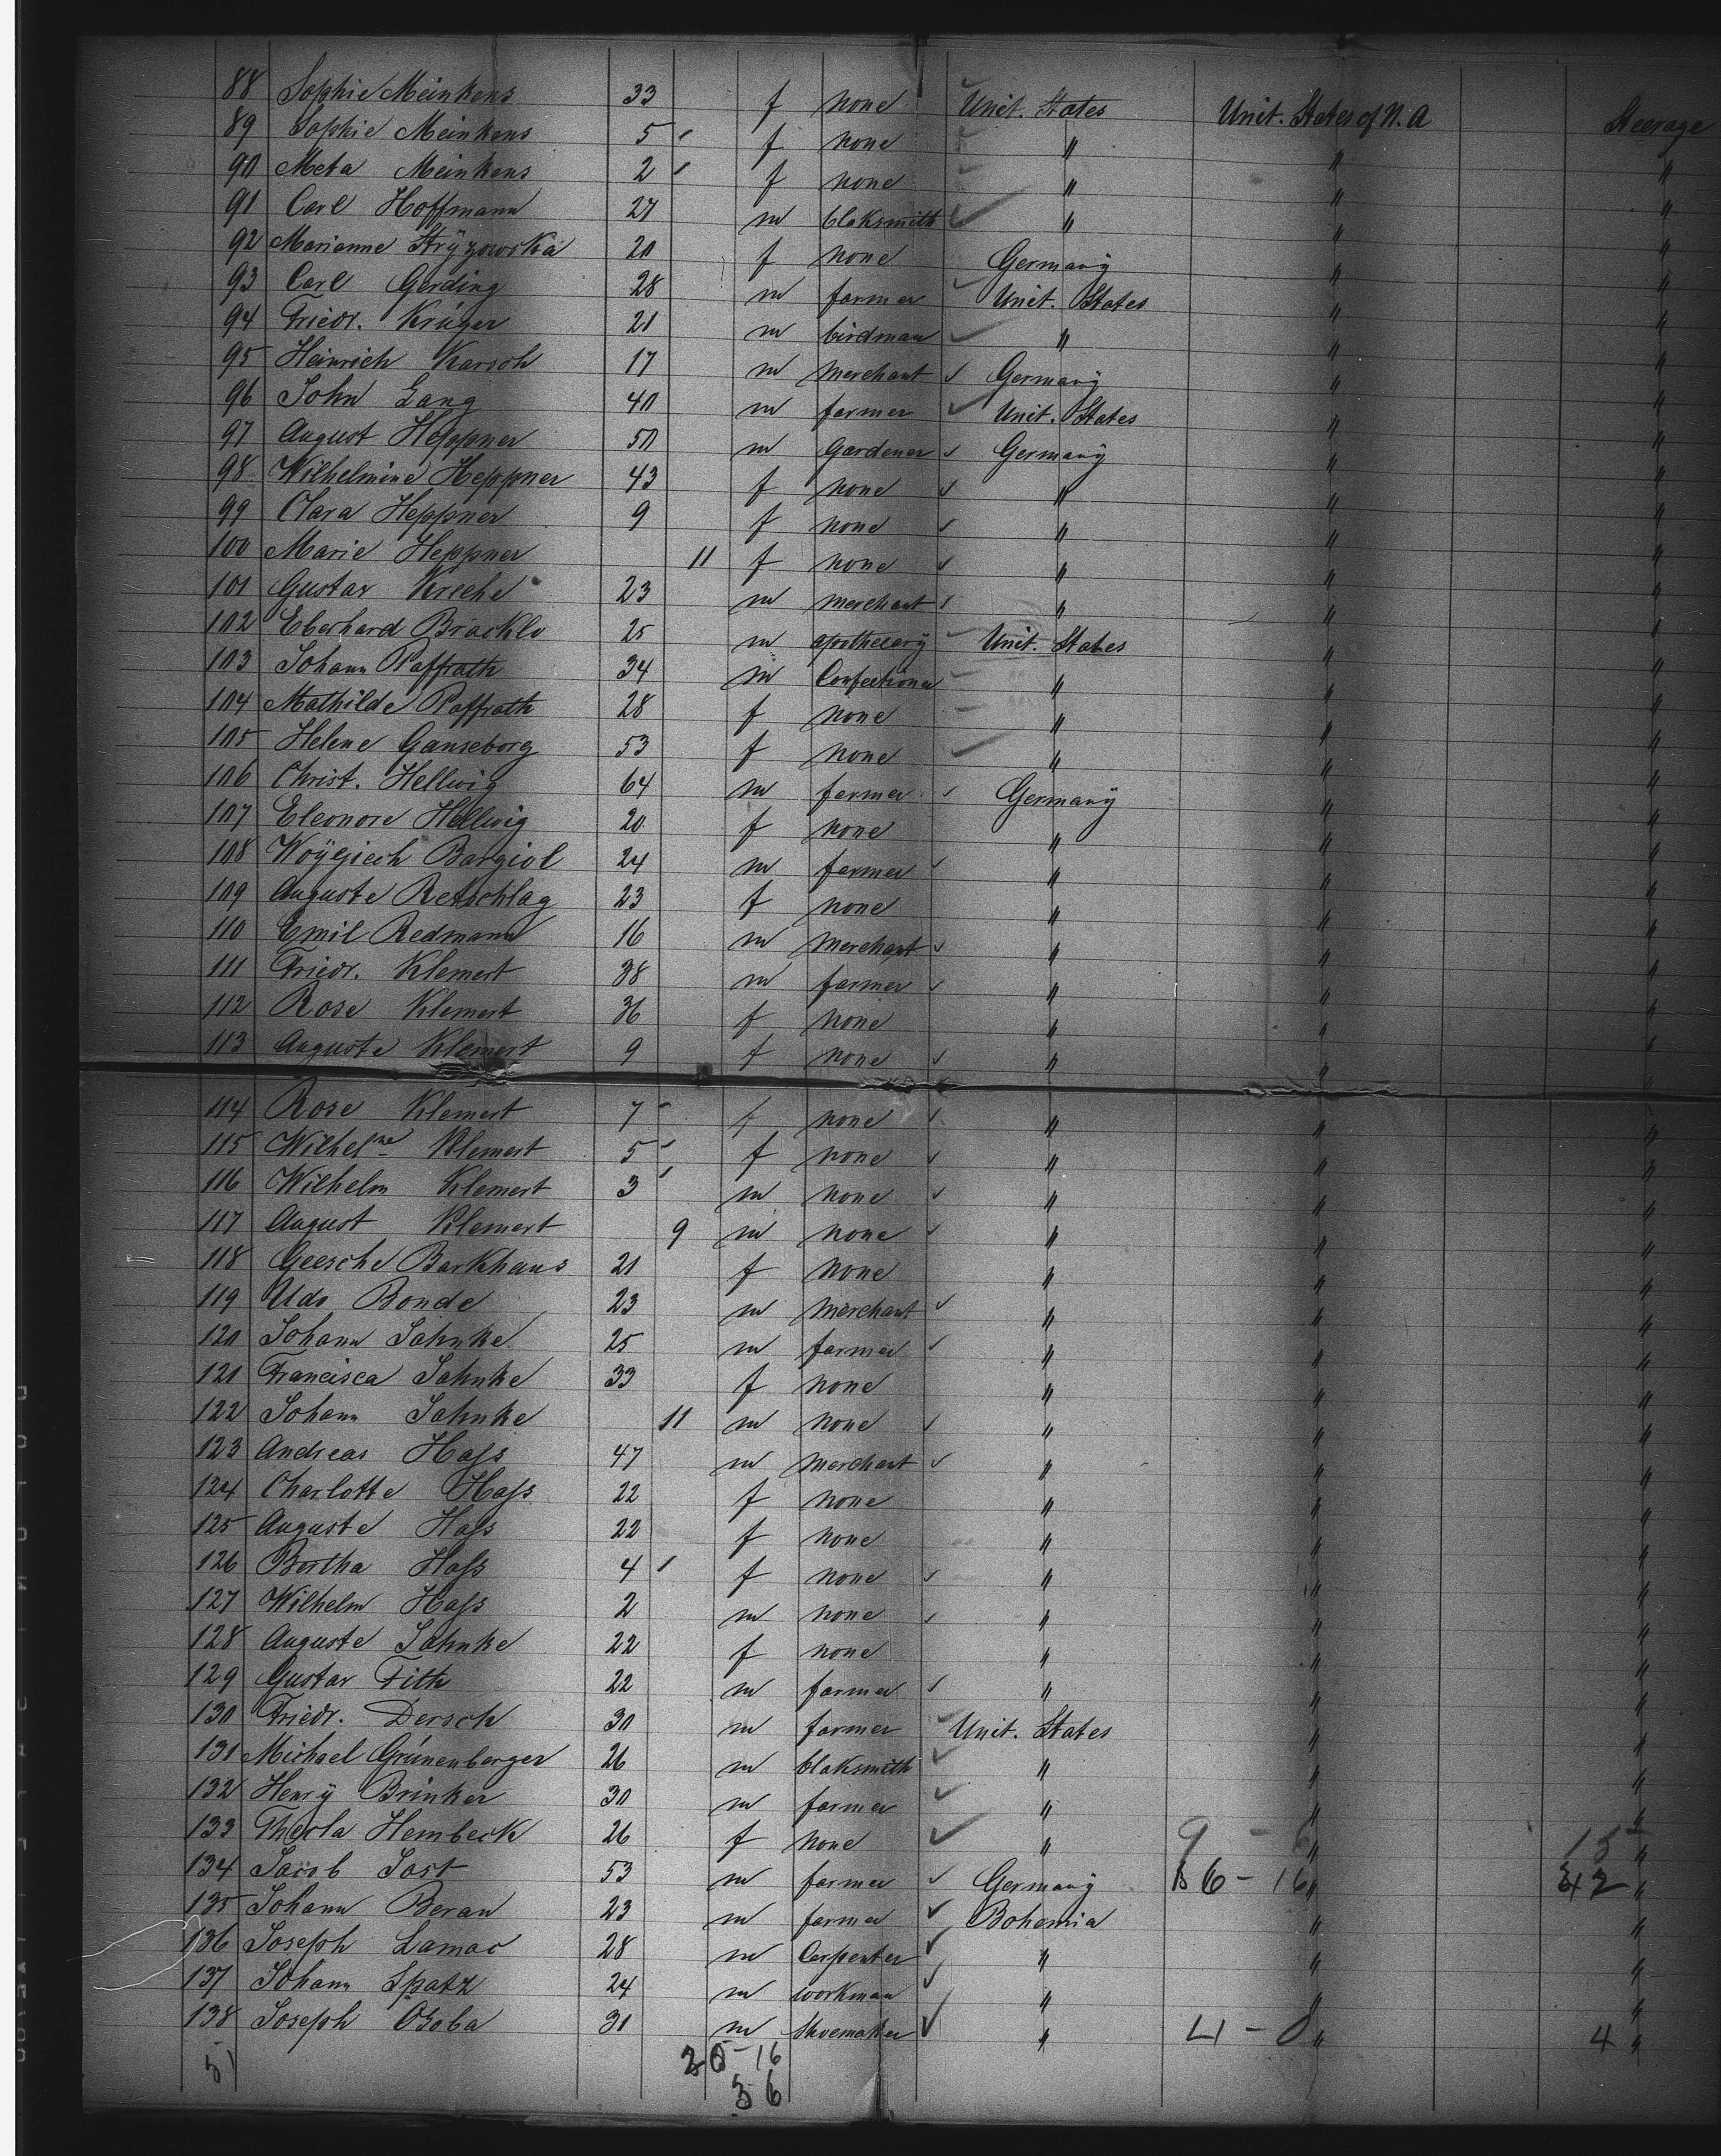 88 Sophie Meinkens 33 f none Unit. States Unit. States of N. A Steerage
89 Sophie Meinkens 5 f none " " "
90 Meta Meinkens 2 f none " " "
91 Carl Hoffmann 27 m blaksmith " " "
92 Marianne Strÿzowska 20 f none Germanÿ " "
93 Carl Gerding 28 m farmer Unit. States " "
94 Friedr. Krüger 21 m birdman " " "
95 Heinrich Karsch 17 m merchant Germanÿ " "
96 John Lang 40 m farmer Unit. States " "
97 August Heppner 50 m gardener Germanÿ " "
98 Wilhelmine Heppner 43 f none " " "
99 Clara Heppner 9 f none " " "
100 Marie Heppner 11 f none " " "
101 Gustav Kreche 23 m merchant " " "
102 Eberhard Bracklo 25 m apothecarÿ Unit. States " "
103 Johann Paffrath 34 m Confectioner " " "
104 Mathilde Paffrath 28 f none " " "
105 Helene Ganseborg 53 f none " " "
106 Christ. Hellwig 64 m farmer Germanÿ " "
107 Eleonore Hellwig 20 f none " " "
108 Woÿciech Bargiol 24 m farmer " " "
109 Auguste Retschlag 23 f none " " "
110 Emil Redmann 16 m merchant " " "
111 Friedr. Klemert 38 m farmer " " "
112 Rose Klemert 36 f none " " "
113 Auguste Klemert 9 f none " "
114 Rose Klemert 7 f none " " "
115 Wilhelne Klemert 5 f none " " "
116 Wilhelm Klemert 3 m none " " "
117 August Klemert 9 m none " " "
118 Geesche Barkhaus 21 f none " " "
119 Udo Bonde 23 m merchant " " "
120 Johann Jahnke 25 m farmer " " "
121 Francisca Jahnke 33 f none " " "
122 Johann Jahnke 11 m none " " "
123 Andreas Hass 47 m merchant " " "
124 Charlotte Hass 22 f none " " "
125 Auguste Hass 22 f none " " "
126 Bertha Hass 4 f none " " "
127 Wilhelm Hass 2 m none " " "
128 Auguste Jahnke 22 f none " " "
129 Gustav Fith 22 m farmer " " "
130 Friedr. Dersch 30 m farmer Unit. States " "
131 Michael Grünenberger 26 m blaksmith " " "
132 Henrÿ Brinker 30 m farmer " " "
133 Thecla Hembeck 26 f none " 9 - 6 " 15 "
134 Jacob Jost 53 m farmer Germanÿ 6 - 16 " 42 "
135 Johann Beran 23 m farmer Bohemia " "
136 Joseph Lamac 28 m Carpenter " " "
137 Johann Spatz 24 m workman " " "
138 Joseph Osoba 31 m Shoemaker " 4 - 0 " 4 "
51 20 - 16
36